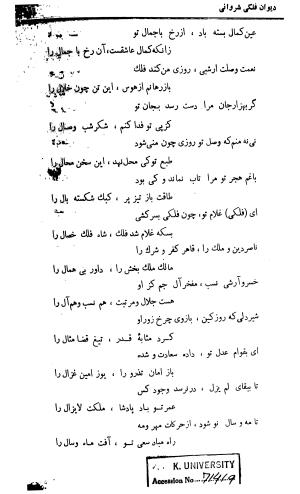 دیوان فلکی شروانی
عین کمال بسته باد ، از رخ باجمال تو
زانکه کمال عاشقست، آن رخ با جمال را
نعمت وصلت ارشبی ، روزی من کند فلک
باز رهانم از هوس ، این تن چون خلال را
گر بهزار جان مرا دست رسد بجان تو
کز پی تو فدا کنم ، شکر شب وصال را
نی نه منم که وصل تو روزی چون منی شود
طبع تو کی محل نهد ، این سخن محال را
با غم هجر تو مرا تاب نماند و کی بود
طاقت باز تیز پر ، کبک شکسته بال را
ای (فلکی) غلام تو، چون فلکی بسرکشی
بسکه غلام شد فلک ، شاه فلک خصال را
ناصر دین و ملک را ، قاهر کفر و شرک را
مالک ملک بخش را ، داور بی همال را
خسرو آرشی نسب ، مفخر آل جم کز او
هست جلال و مرتبت ، هم نسب و هم آل را
شیر دلی که روز کین ، بازوی چرخ زور او
کرد مثابهٔ قدر ، تیغ قضا مثال را
ای بقوام عدل تو ، داده سعادت و شده
باز امان تذرو را ، یوز امین غزال را
تا ببقای لم یزل ، در نرسد وجود کس
عمر تو باد پادشا ، ملکت لایزال را
تا مه و سال نو شود ، از حرکات مهر و مه
راه مباد سعی تو ، آفت ماه و سال را
K. UNIVERSITY
Accession No.